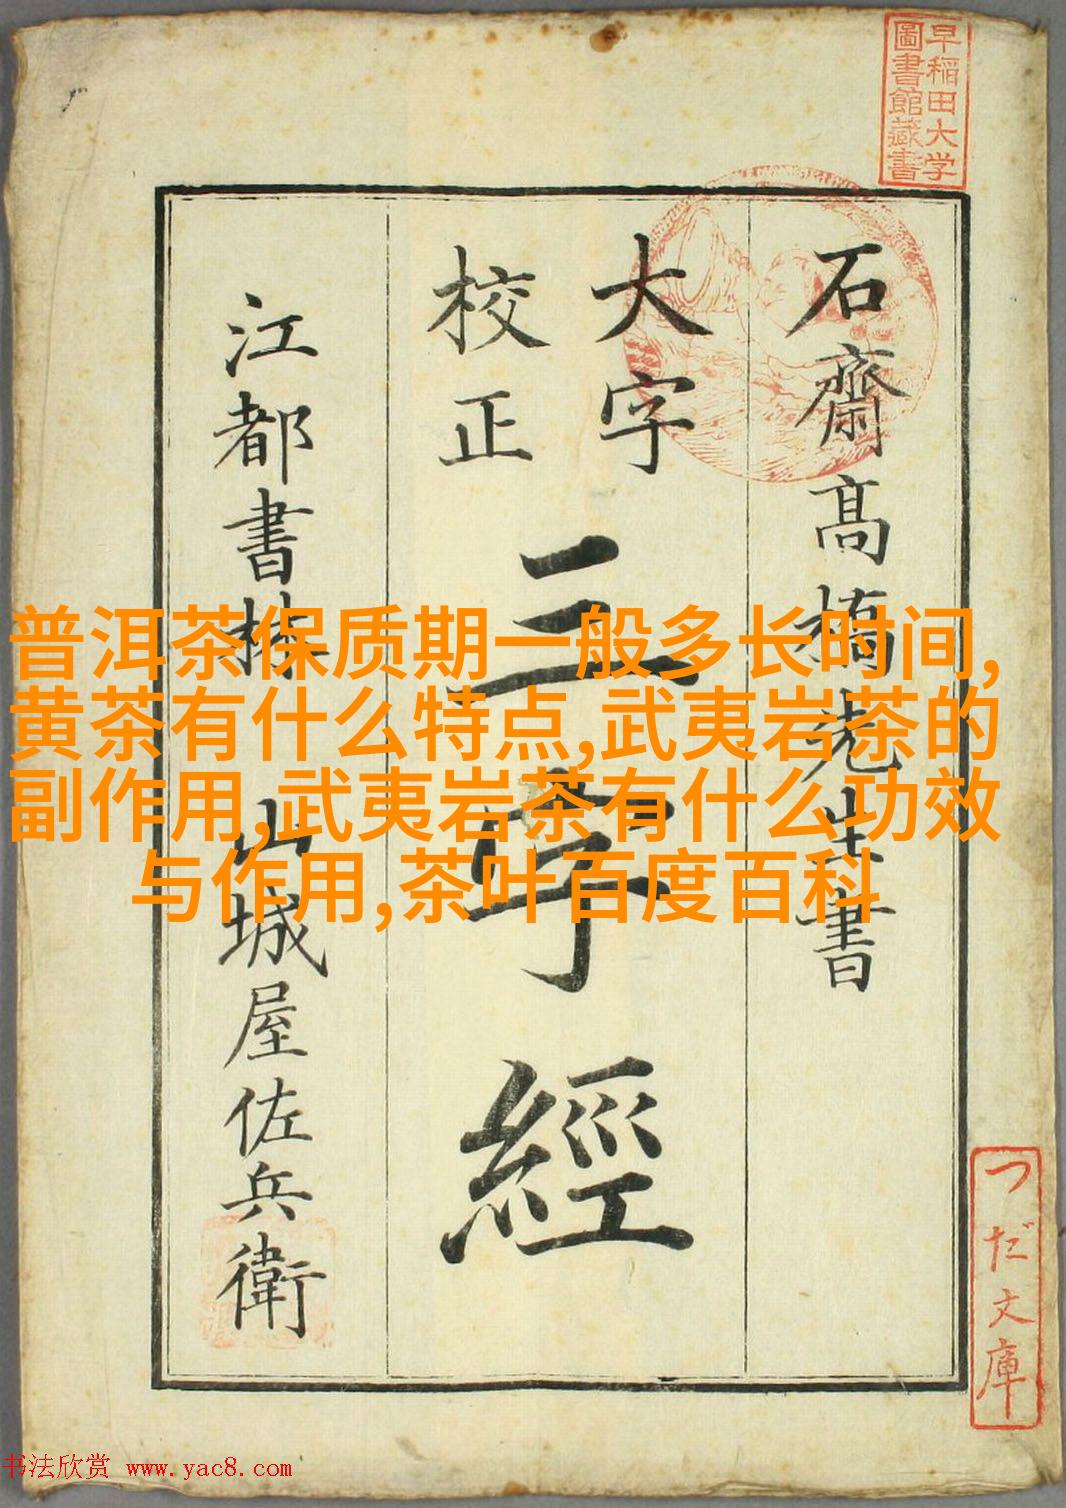 早稲田大学
圖書館藏書
石齋髙橋先生書
大字
校正
三字經
江都書林 山城屋佐兵衛
普洱茶保质期一般多长时间,
黄茶有什么特点,武夷岩茶的
副作用,武夷岩茶有什么功效
与作用,茶叶百度百科
つだ文庫
书法欣赏 www.yac8.com